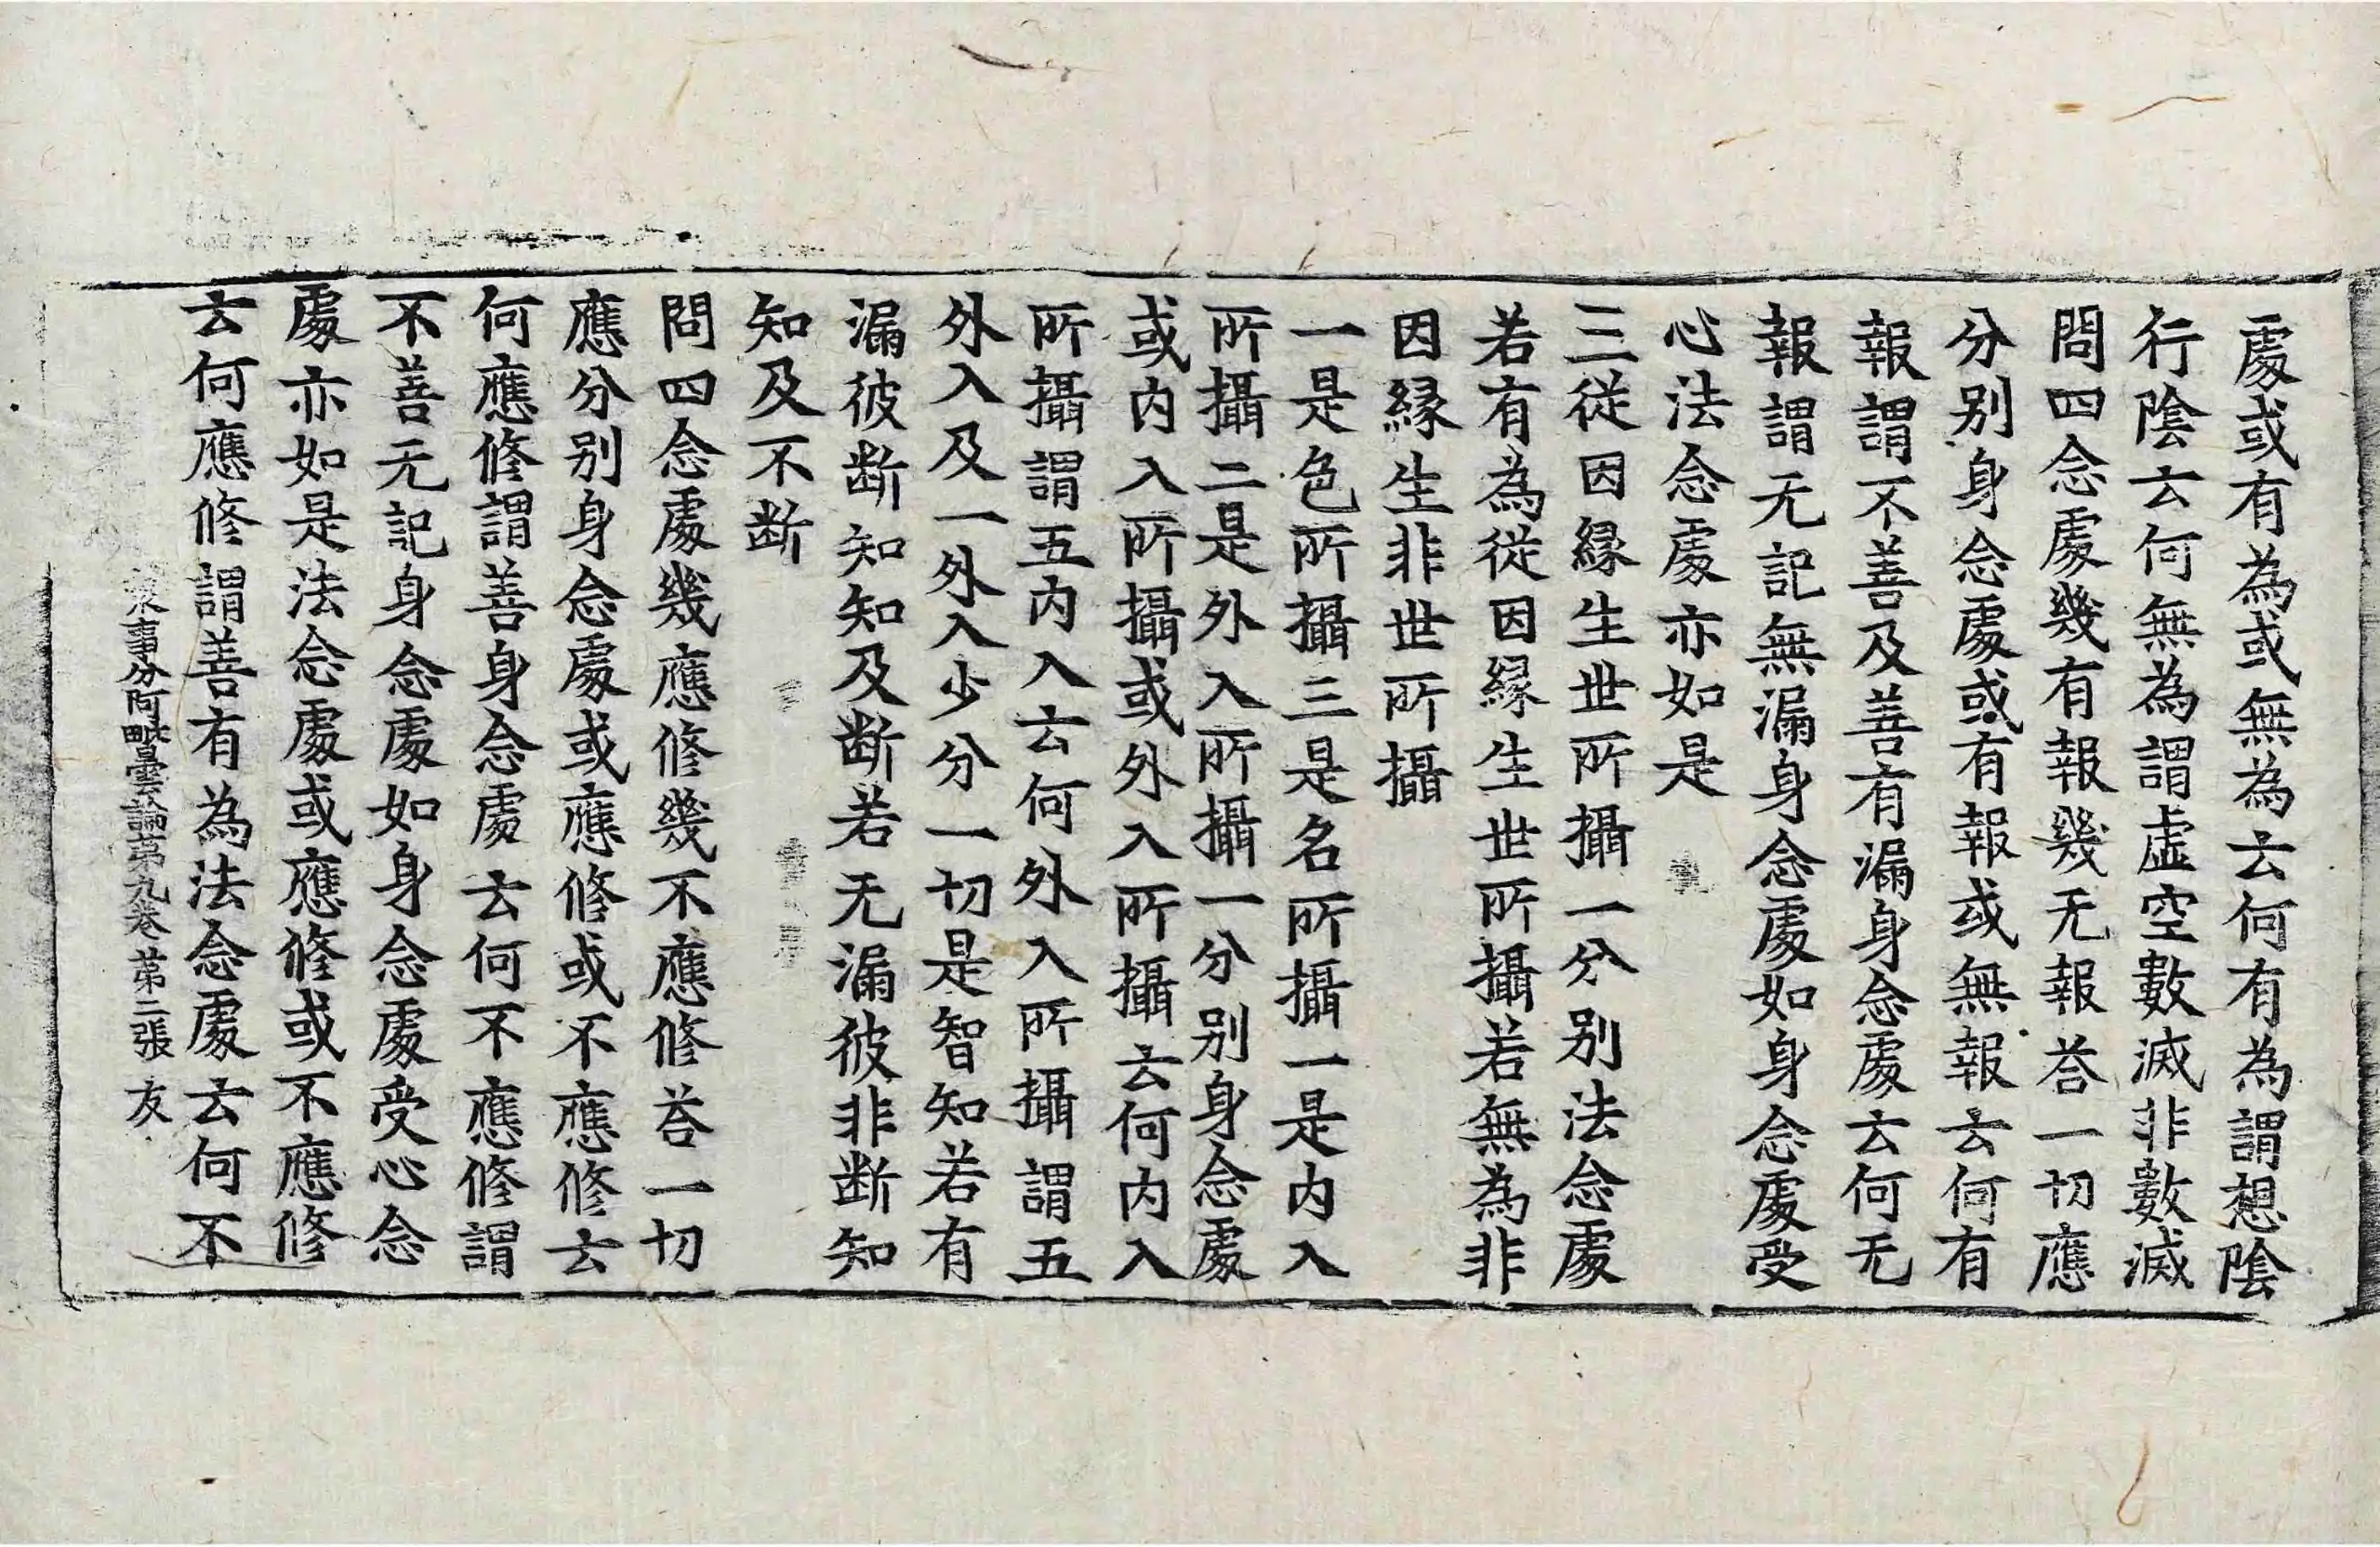 處或有為或無為云何有為謂想陰
行陰云何無為謂虛空數滅非數滅
問四念處幾有報幾无報荅一切應
分別身念處或有報或無報云何有
報謂不善及善有漏身念處云何无
報謂无記無漏身念處如身念處受
心法念處亦如是
三從因縁生世所攝一分別法念處
若有為從因縁生世所攝若無為非
因縁生非世所攝
一是色所攝三是名所攝一是内入
所攝二是外入所攝一分別身念處
或内入所攝或外入所攝云何内入
所攝謂五内入云何外入所攝謂五
外入及一外入少分一切是智知若有
漏彼断知知及断若无漏彼非断知
知及不断
問四念處幾應修幾不應修荅一切
應分別身念處或應修或不應修云
何應修謂善身念處云何不應修謂
不善无記身念處如身念處受心念
處亦如是法念處或應修或不應修
云何應修謂善有為法念處云何不
衆事分阿毗曇論苐九卷 苐二張 友